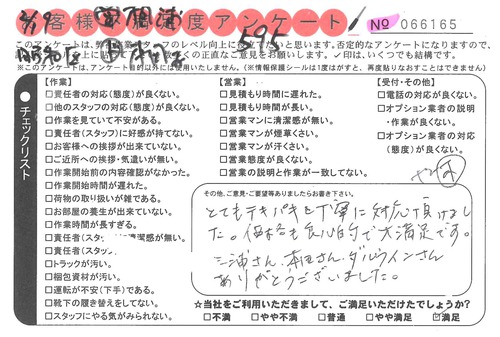 お客様満足度アンケート
No 066165
595
このアンケートは、
のレベル向上に
と思います。否定的なアンケートになりますので、
くの正直なご意見をお願いします。✓印は、いくつでも結構です。
※このアンケートは、アンケート目的以外には使用いたしません。(※情報保護シールは1度はがすと、再度貼りなおすことはできません)
チェックリスト
【作業】
□責任者の対応(態度)が良くない。
□他のスタッフの対応(態度)が良くない。
□作業を見ていて不安がある。
□責任者(スタッフ)に好感が持てない。
□お客様への挨拶が出来ていない。
□ご近所への挨拶・気遣いが無い。
□作業開始前の内容確認がなかった。
□作業開始時間が遅れた。
□荷物の取り扱いが雑である。
□お部屋の養生が出来ていない。
□作業時間が長すぎる。
□責任者(スタ 清潔感が無い。
□責任者(スタ
□トラックが汚い。
□梱包資材が汚い。
□運転が不安(下手)である。
□靴下の履き替えをしてない。
□スタッフにやる気がみられない。
【営業】
□見積もり時間に遅れた。
□見積もり時間が長い。
□営業マンに清潔感が無い。
□営業マンが煙草くさい。
□営業マンが汗くさい。
□営業態度が良くない。
□営業の説明と作業が一致してない。
【受付・その他】
□電話の対応が良くない。
□オプション業者の説明・作業が良くない。
□オプション業者の対応(態度)が良くない。
その他、ご意見・ご要望等ありましたらお書き下さい。
とてもテキパキと丁寧に対応頂けまし
た。価格も良心的で大満足です。
三浦さん、本田さん、ダルウィンさん
ありがとうございました。
☆当社をご利用いただきまして、ご満足いただけたでしょうか?
□不満 □やや不満 □普通 □やや満足 ☑満足